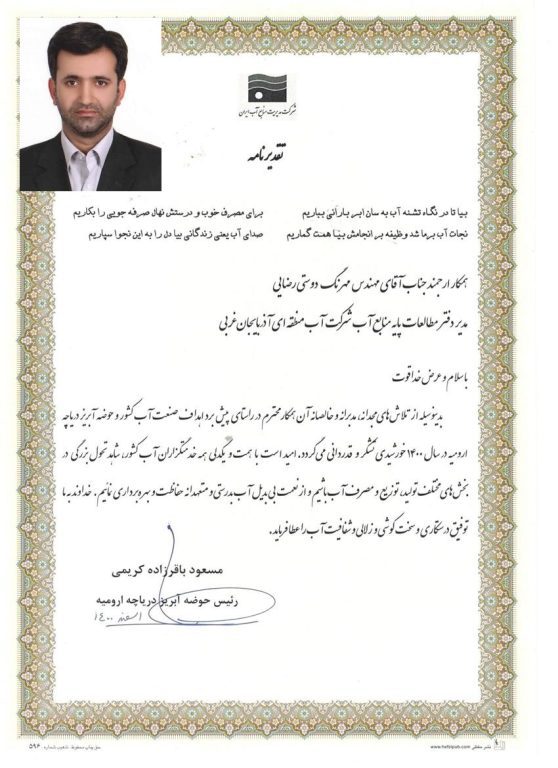 شرکت مدیریت منابع آب ایران
تقدیرنامه
بیا تا در نگاه تشنه آب به سان ابر بارانی بباریم برای مصرف خوب و درستش نهال صرفه جویی را بکاریم
نجات آب برما شد وظیفه بر انجامش بیا همت گماریم صدای آب یعنی زندگانی بیا دل را به این نجوا سپاریم
همکار ارجمند جناب آقای مهندس مهرنگ دوستی رضایی
مدیر دفتر مطالعات پایه منابع آب شرکت آب منطقه ای آذربایجان غربی
با سلام و عرض خدا قوت
بدینوسیله از تلاش های مجدانه، مدبرانه و خالصانه آن همکار محترم در راستای پیش برد اهداف صنعت آب کشور و حوضه آبریز دریاچه
ارومیه در سال ۱۴۰۰ خورشیدی تشکر و قدردانی می گردد. امید است با همت و یکدلی همه خدمتگزاران آب کشور، شاهد تحول بزرگی در
بخش های مختلف تولید، توزیع و مصرف آب باشیم و از نعمت بی بدیل آب بدرستی و متعهدانه حفاظت و بهره برداری نمائیم. خداوند به ما
توفیق درستکاری و سخت کوشی و زلالی و شفافیت آب را عطا فرماید.
مسعود باقرزاده کریمی
رئیس حوضه آبریز دریاچه ارومیه
اسفند ۱۴۰۰
نشر حفظی www.hefzipub.com
حق چاپ محفوظ شعیب شماره: ۵۹۶